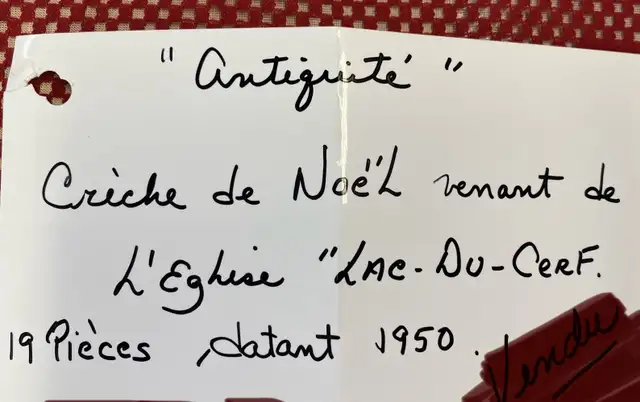 "Antiquité"
Crèche de Noë"L venant de
L'Eghise "LAC-DU-CERF.
19 Pièces, datant 1950.
Vendu